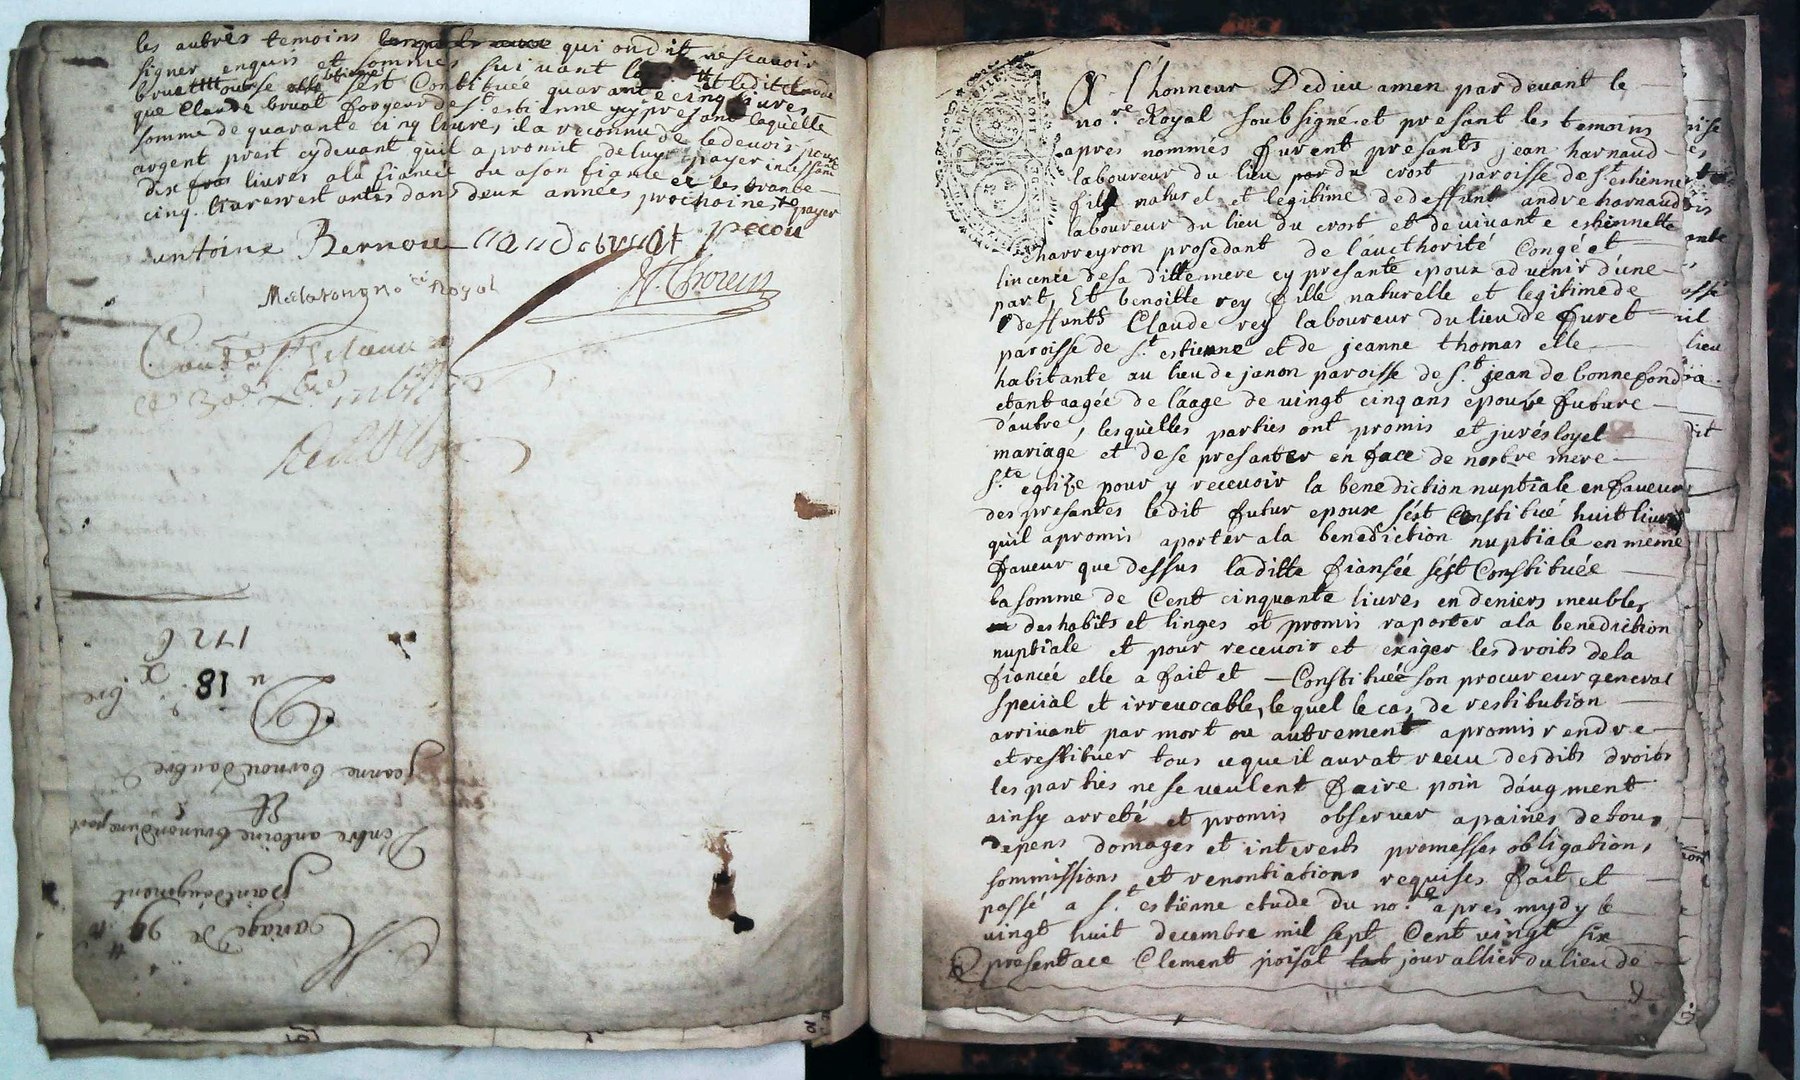 les autres temoins qui ont dit ne scavoir
signer enquis et sommés suivant
s'est Constituée quarante cinq livres
que Claude bruat de St estienne cy présant laquelle
somme de quarante cinq livres il a reconnu de le devoir pour
argent prest cydevant qu'il a promit de luy payer
dix livres a la fiancée ou a son fiancé et les trante
cinq livres restantes dans deux années prochaines payer
antoine Bernou Claude bruat pecou
Royal
Mariage de 99 tt
point daugment
D'entre antoine brunon d'une part
Et
jeanne bernou d'autre
Du 18 e Xbre
1726
A l'honneur Dedieu amen pardevant le
nore Royal soubsigné et présant les temoins
apres nommés furent présants jean harnaud
laboureur du lieu du crost paroisse de St estienne
fils naturel et legitime dedeffunt andre harnaud
laboureur du lieu du crost et devivante estiennette
charreyron prosédant de l'authorité Congé et
lincence desa ditte mere cy présante epoux advenir d'une
part, Et benoitte rey fille naturelle et legitime de
deffunts Claude rey laboureur du lieu de furet
paroisse de St estienne et de jeanne thomas elle
habitante au lieu de janon paroisse de St jean de bonnefond
etant aagée de l'aage de vingt cinq ans epouse future
d'autre, lesquelles parties ont promis et jurés loyel
mariage et de se presanter en face de nostre mere
Ste eglize pour y recevoir la benediction nuptiale en faveur
des présantes le dit futur epoux s'est Constitué huit livres
qu'il a promis aporter a la benediction nuptiale en meme
faveur que dessus la ditte fiansée s'est Constituée
la somme de Cent cinquante livres en deniers meubles
des habits et linges et promis raporter a la benediction
nuptiale et pour recevoir et exiger les droits dela
fiancée elle a fait et Constitué son procureur general
special et irrevocable, lequel le cas de restitution
arrivant par mort ou autrement a promis rendre
et restituer tous ce que il aurat recu desdits droits
les parties ne se veulent faire poin d'augment
ainsy arreté et promis observer a paines de tous
depens domages et interests promesses obligations
sommissions et renontiations requises fait et
passé a St estienne etude du nore apres mydy le
vingt huit decembre mil sept Cent vingt six
présent ace Clement poisat journallier du lieu de